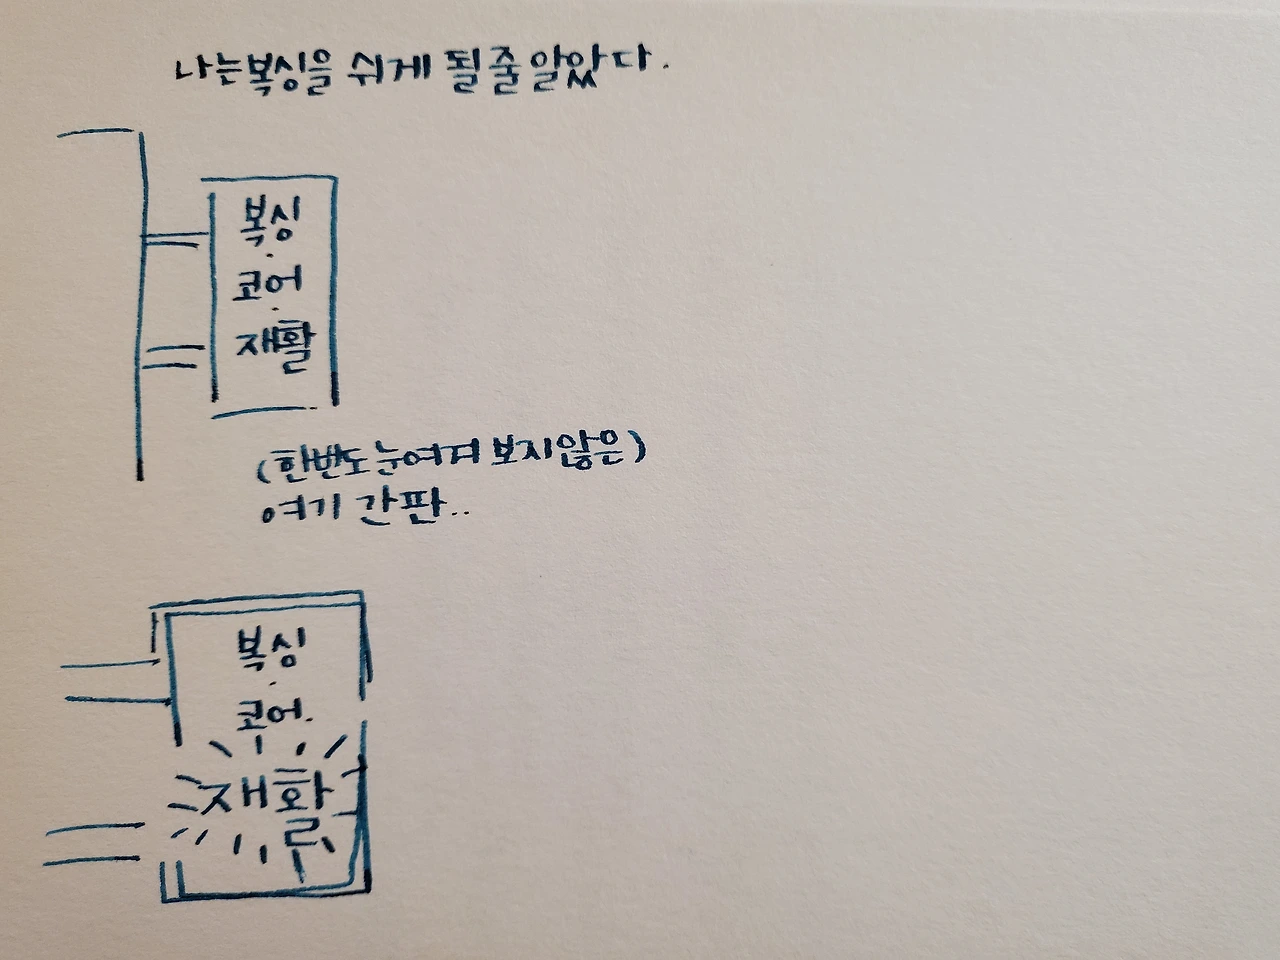 나는복싱을 쉬게 될줄 알았다.
복싱
·
코어
·
재활
(한번도 눈여겨 보지않은)
여기 간판..
복싱
·
코어.
재활